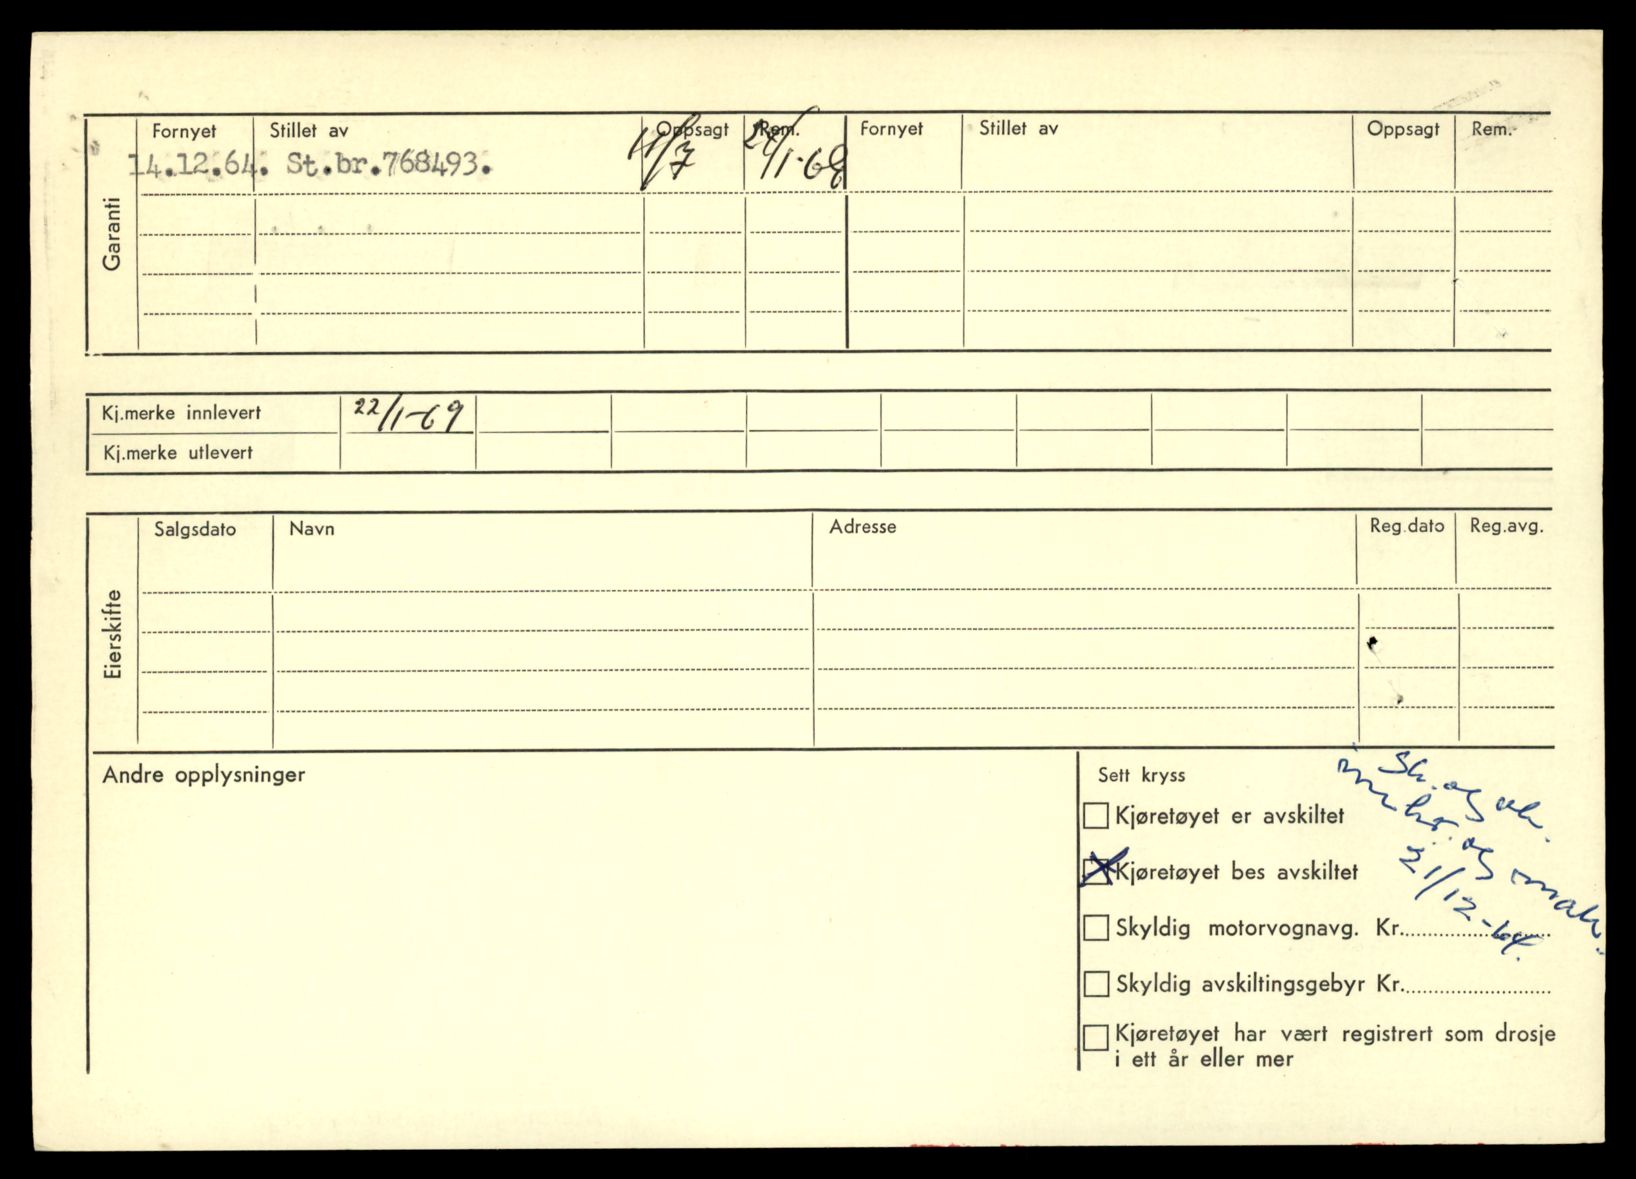 Garanti
Fornyet Stillet av Oppsagt Rem. Fornyet Stillet av Oppsagt Rem.
14.12.64. St.br.768493. 11/7 24/1-68
Kj.merke innlevert 22/1-69
Kj.merke utlevert
Eierskifte
Salgsdato Navn Adresse Reg.dato Reg.avg.
Andre opplysninger
Sett kryss
Kjøretøyet er avskiltet
Kjøretøyet bes avskiltet
Skyldig motorvognavg. Kr.
Skyldig avskiltingsgebyr Kr.
Kjøretøyet har vært registrert som drosje
i ett år eller mer
Sk. og
og
21/12-64.